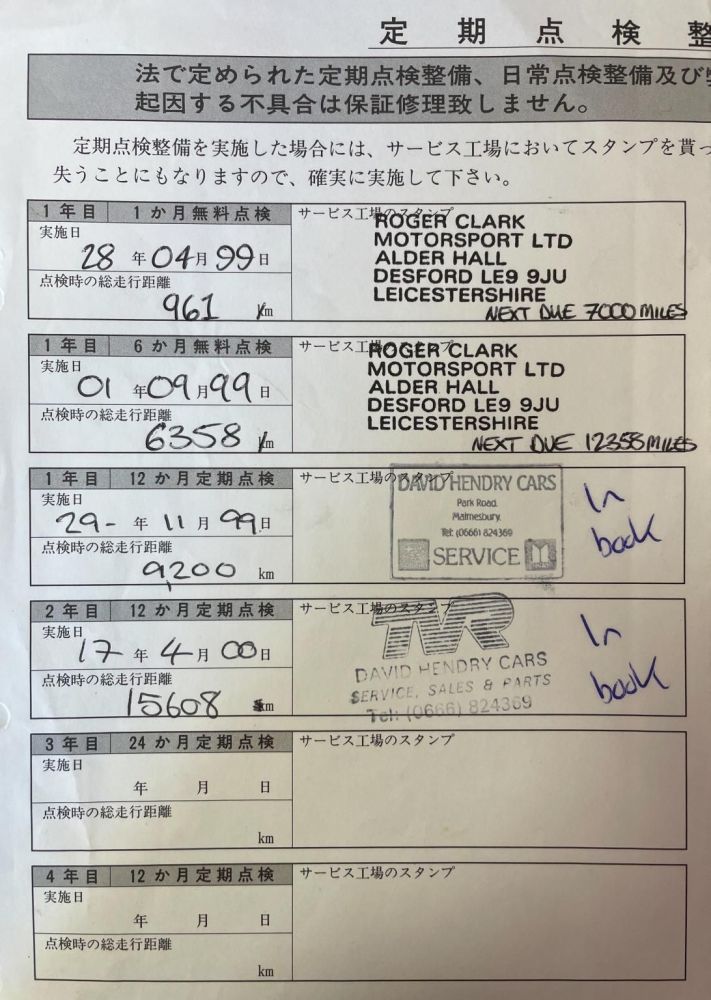 定期点検整
法で定められた定期点検整備、日常点検整備及び
起因する不具合は保証修理致しません。
定期点検整備を実施した場合には、サービス工場においてスタンプを貰っ
失うことにもなりますので、確実に実施して下さい。
1年目 1か月無料点検 サービス工場のスタンプ
実施日
28年04月99日
点検時の総走行距離
961 km
ROGER CLARK
MOTORSPORT LTD
ALDER HALL
DESFORD LE9 9JU
LEICESTERSHIRE
NEXT DUE 7000 MILES
1年目 6か月無料点検 サービス工場のスタンプ
実施日
01年09月99日
点検時の総走行距離
6358 km
ROGER CLARK
MOTORSPORT LTD
ALDER HALL
DESFORD LE9 9JU
LEICESTERSHIRE
NEXT DUE 12358 MILES
1年目 12か月定期点検 サービス工場のスタンプ
実施日
29-年11月99日
点検時の総走行距離
9,200 km
DAVID HENDRY CARS
Park Road,
Malmesbury.
Tel: (0666) 824369
SERVICE
In
book
2年目 12か月定期点検 サービス工場のスタンプ
実施日
17年4月00日
点検時の総走行距離
15608 km
TVR
DAVID HENDRY CARS
SERVICE, SALES & PARTS
Tel: (0666) 824369
In
book
3年目 24か月定期点検 サービス工場のスタンプ
実施日
年 月 日
点検時の総走行距離
km
4年目 12か月定期点検 サービス工場のスタンプ
実施日
年 月 日
点検時の総走行距離
km